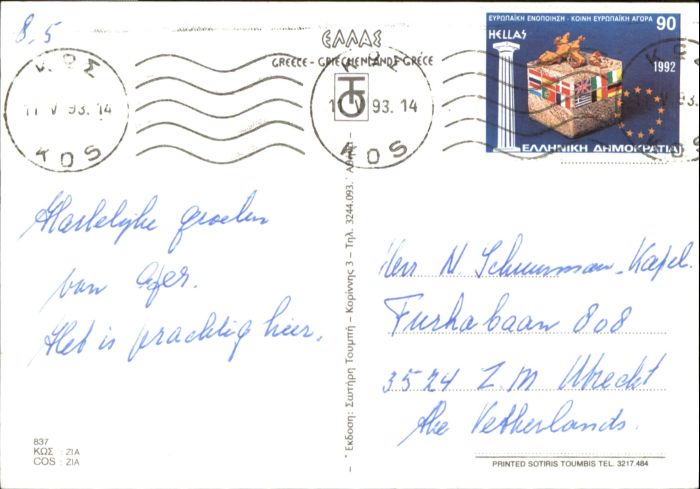 8,5
ΕΛΛΑΣ
GREECE - GRIECHENLAND - GRÈCE
ΚΩΣ
11 V 93. 14
KOS
ΚΩΣ
11 V 93. 14
KOS
ΕΥΡΩΠΑΪΚΗ ΕΝΟΠΟΙΗΣΗ - ΚΟΙΝΗ ΕΥΡΩΠΑΪΚΗ ΑΓΟΡΑ
90
HELLAS
1992
ΕΛΛΗΝΙΚΗ ΔΗΜΟΚΡΑΤΙΑ
Hartelijke groeten
van
Het is prachtig hier.
Herr N Schuurman-Kapel.
Furkabaan 808
3524 Z.M Utrecht
the Netherlands.
Έκδοση: Σωτήρη Τουμπή - Κορίννης 3 - Τηλ. 3244.093.
837
ΚΩΣ : ΖΙΑ
COS : ZIA
PRINTED SOTIRIS TOUMBIS TEL. 3217.484